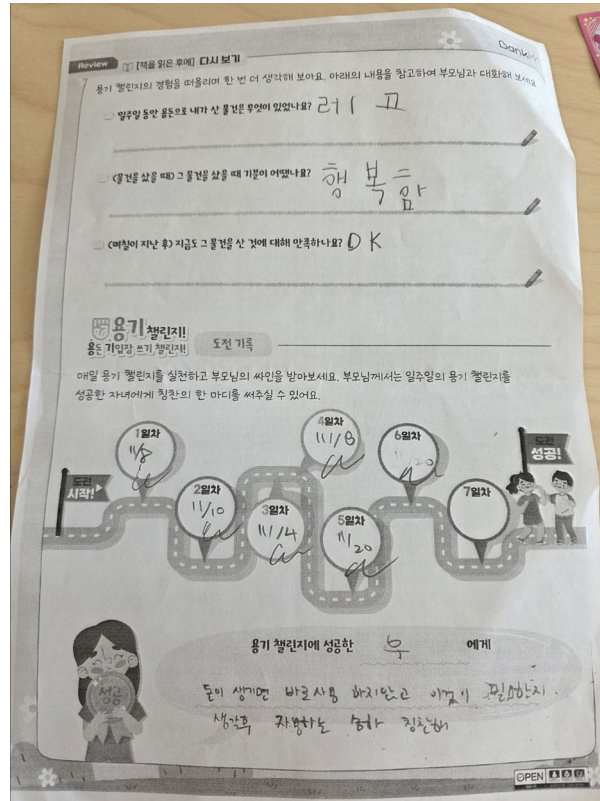 Review [책을 읽은 후에] 다시 보기
용기 챌린지의 경험을 떠올리며 한 번 더 생각해 보아요. 아래의 내용을 참고하여 부모님과 대화해 보세요
일주일 동안 용돈으로 내가 산 물건은 무엇이 있었나요?
(물건을 샀을 때) 그 물건을 샀을 때 기분이 어땠나요? 행복함
(며칠이 지난 후) 지금도 그 물건을 산 것에 대해 만족하나요? OK
용기 챌린지!
용돈 기입장 쓰기 챌린지! 도전 기록
매일 용기 챌린지를 실천하고 부모님의 싸인을 받아보세요. 부모님께서는 일주일의 용기 챌린지를
성공한 자녀에게 칭찬의 한 마디를 써주실 수 있어요.
도전 시작!
1일차 11/8
2일차 11/10
3일차 11/14
4일차 11/18
5일차 11/20
6일차 11/20
7일차
도전 성공!
성공
용기 챌린지에 성공한 우 에게
돈이 생기면 바로 사용 하지않고 이것이 필요한지
생각후 사용하는 칭찬해
OPEN